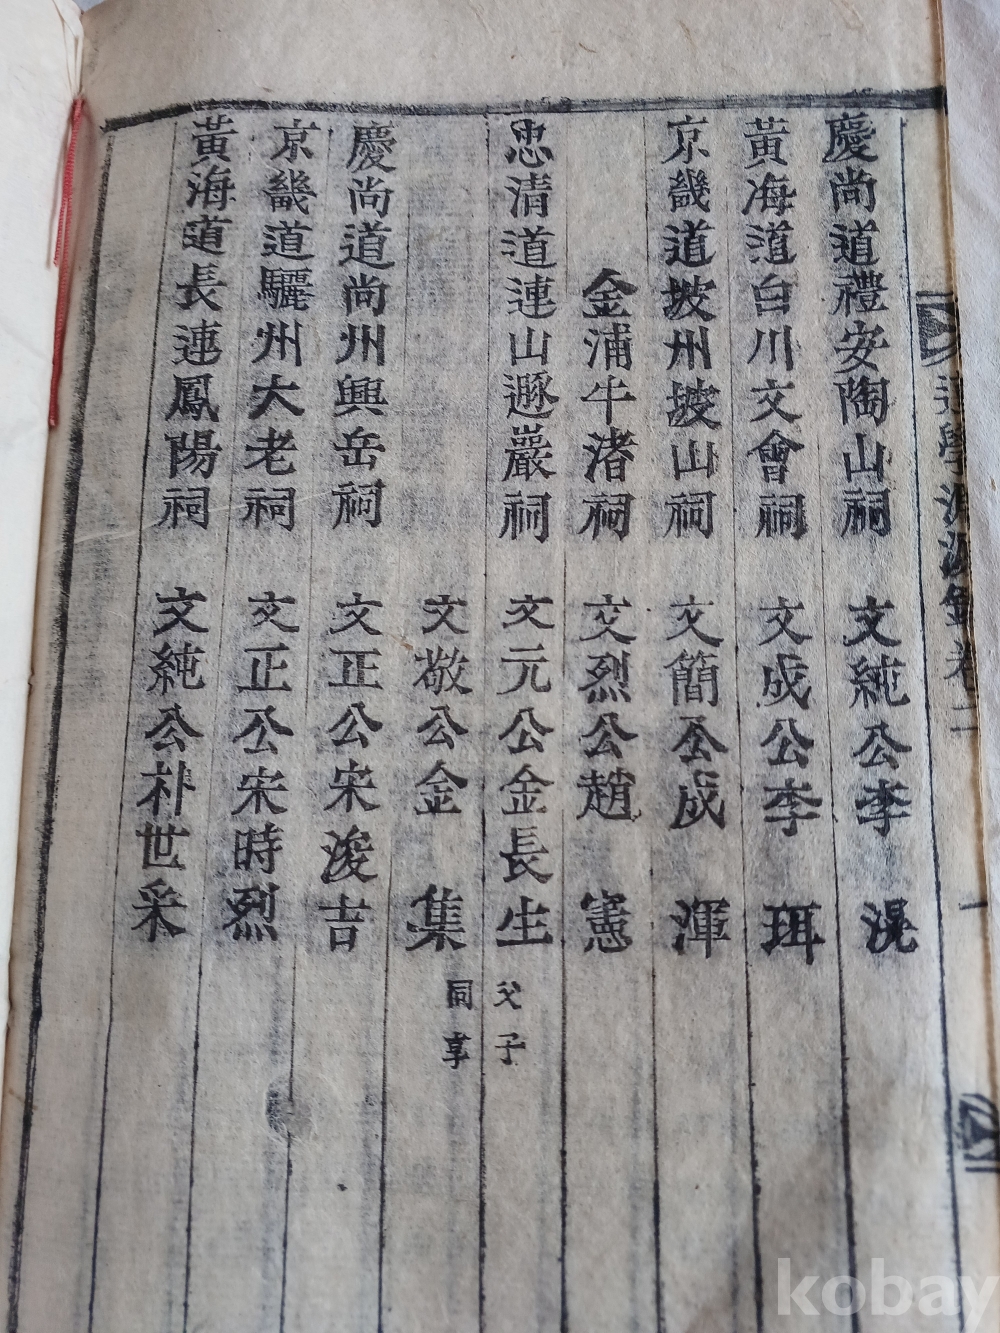 慶尚道禮安陶山祠 文純公李 滉
黃海道白川文會祠 文成公李 珥
京畿道坡州坡山祠 文簡公成 渾
金浦牛渚祠 文烈公趙 憲
忠清道連山遯巖祠 文元公金長生 父子
文敬公金 集 同享
慶尚道尚州興岳祠 文正公宋浚吉
京畿道驪州大老祠 文正公宋時烈
黃海道長連鳳陽祠 文純公朴世采
學淵源錄卷二
一
kobay